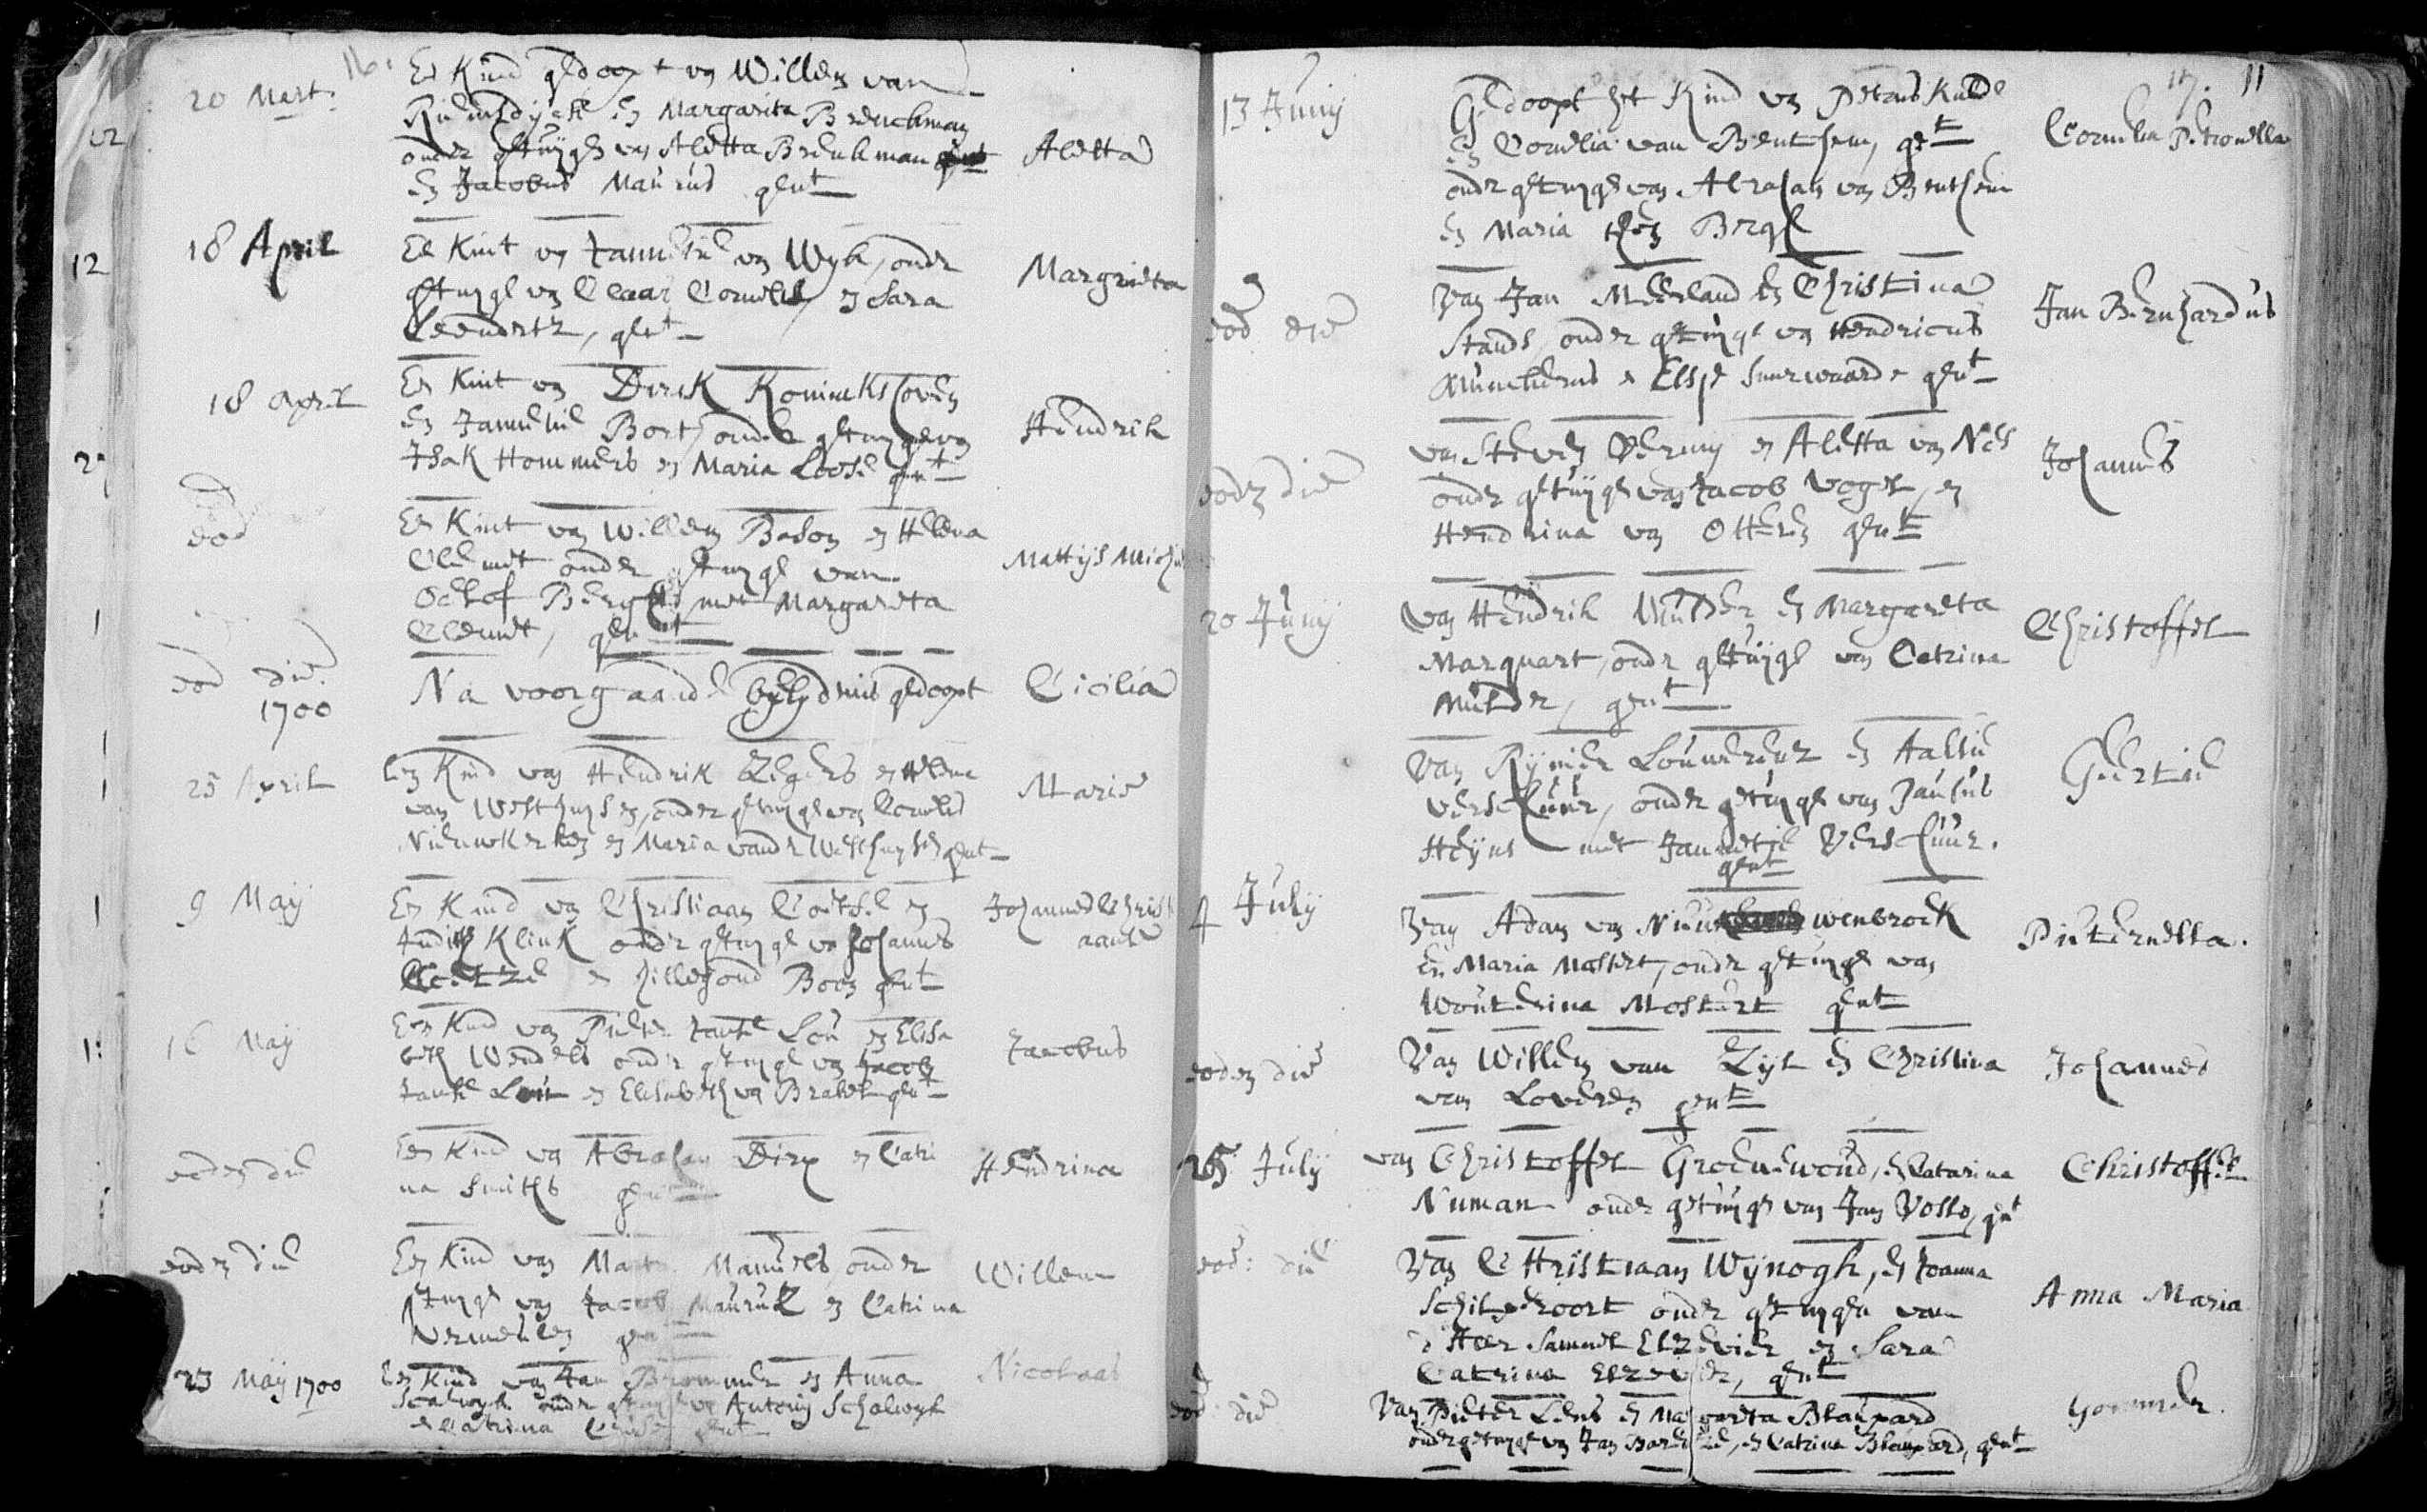 16.
20 Mart.
Een Kind gedoopt van Willem van
en Margarita Breuckman
onder getuyge van Aletta Breukman
en Jacobus Maurus gent
Aletta
18 April
Een Kint van Jannetie van Wyk, onder
getuyge van Claas Cornelis en Sara
Leendertz, gent
Margrieta
18 April
Een Kint van Dirck Koninckshoven
en Jannetie Bort, onder getuyge van
Isak Hommers en Maria Loose gent
Hendrik
eod
Een Kint van Willem Bason en Helena
Clemet onder getuyge van
Oelof Bergh met Margareta
Clemet, gent
Mattijs Michiel
eod die
1700
Na voorgaande belydenis gedoopt
Cicilia
25 April
Een Kind van Hendrik Zegers en Helena
van Westhuysen, onder getuyge van Cornelis
Nieuwkerken en Maria vander Westhuysen gent
Marie
9 May
Een Kind van Christiaan Coetse en
Judith Klink onder getuyge van Johannes
Coetze en Hillegond Boom gent
Johannes Christi
aanse
16 May
Een Kind van Pieter Janse Lou en Elisa
beth Wendels onder getuyge van Jacob
Janse Lou en Elisabeth van Brakel gent
Jacobus
eodem die
Een Kind van Abraham Dirx en Catri
na Smiths
Hendrina
eodem die
Een Kind van Manuels onder
getuyge van Jacob Mauruz en Catrina
Vermeulen
Willem
23 May 1700
Een Kind van Jan Brommer en Anna
Scalwyk onder getuyge van Antony Schalwyk
en Catrina gent
Nicolaas
17. 11
13 Juny
Gedoopt het Kind van Petrus
en Cornelia van Benthem, gent
onder getuyge van Abraham van Benthem
en Maria then Bergh
Cornelia Petronella
eod die
Van Jan Meerland en Christina
Stands, onder getuyge van Hendricus
Munckerus en Elsje Suurwaarde gent
Jan Bernhardus
eodem die
van Steven Vermey en Aletta van Nes
onder getuyge van Jacob Vogel, en
Hendrina van Otteren gent
Johannes
20 Juny
Van Hendrik Mulder en Margareta
Marquart, onder getuyge van Catrina
Mulder, gent
Christoffel
Van Rynier Louwrenz en Aaltie
Verschuur, onder getuyge van Paulus
Heyns met Jannetje Verschuur.
gent
Geertie
4 July
Van Adam van Nieuwenbroek
En Maria Mostert, onder getuyge van
Wouterina Mostert gent
Pieternella.
eodem die
Van Willem van Zyl en Christina
van Loveren gent
Johannes
25 July
van Christoffel Groenewoud, en Catarina
Numan onder getuyge van Jan Vosloo, gent
Christoffel
eod: die
Van Christiaan Wynogh, en Joanna
Schilperoort onder getuygen van
d'Heer Samuel Elzevier en Sara
Catrina Elzevier, gent
Anna Maria
eod: die
Van Pieter Lens en Margareta Blaupard
onder getuyge van Jan Barentse, en Catrina Blaupard, gent
Gommer.